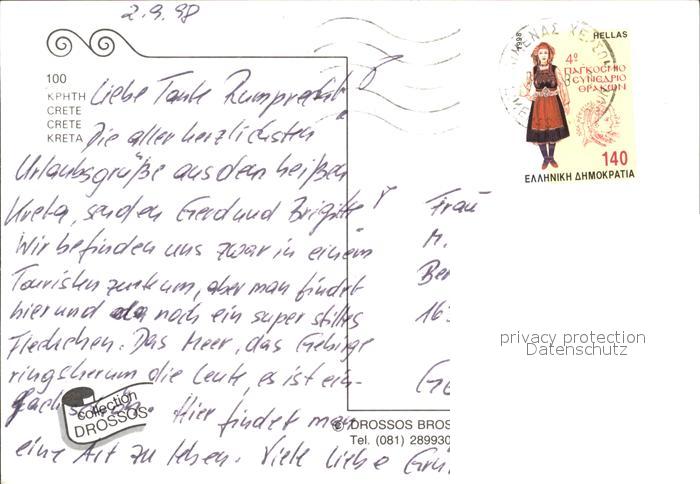 2.9.98
100
ΚΡΗΤΗ
CRETE
CRETE
KRETA
Liebe Tante Rumprecht!
Die allerherzlichsten
Urlaubsgrüße aus dem heißen
Kreta, senden Gerd und Brigitte!
Wir befinden uns zwar in einem
Touristenzentrum, aber man findet
hier und da noch ein super stilles
Fleckchen. Das Meer, das Gebirge
ringsherum die Leute, es ist ein-
fach schön. Hier findet man
eine Art zu leben. Viele liebe Grü
collection
DROSSOS
© DROSSOS BROS
Tel. (081) 289930
Frau
M.
Ber
163
Ge
1998
HELLAS
4º
ΠΑΓΚΟΣΜΙΟ
ΣΥΝΕΔΡΙΟ
ΘΡΑΚΩΝ
140
ΕΛΛΗΝΙΚΗ ΔΗΜΟΚΡΑΤΙΑ
privacy protection
Datenschutz